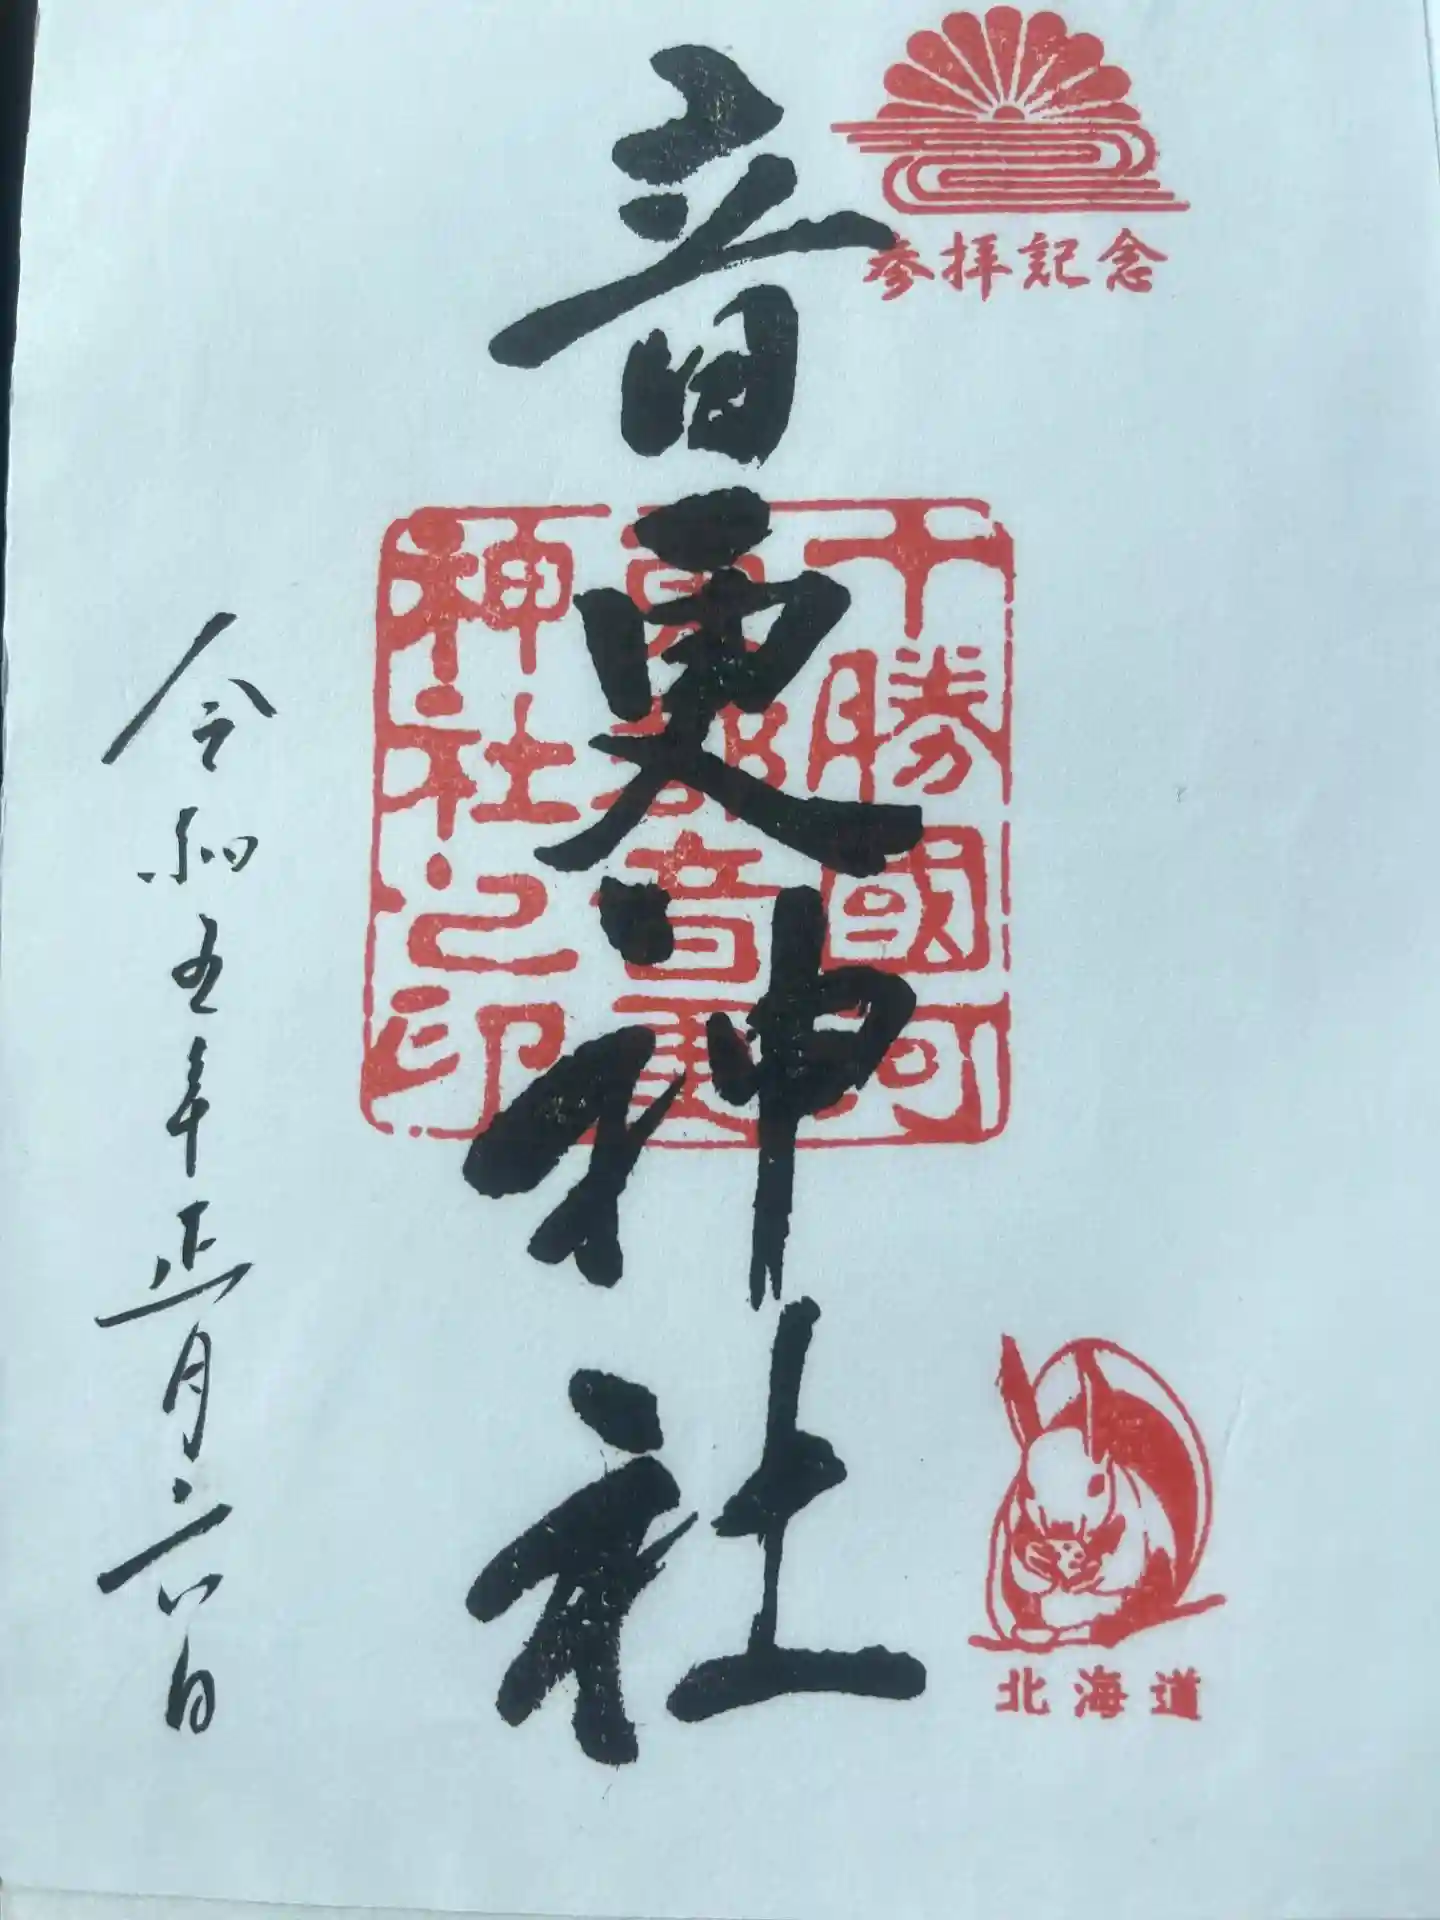 参拝記念
音更神社
十勝國河
東郡音更
神社之印
北海道
令和五年正月六日